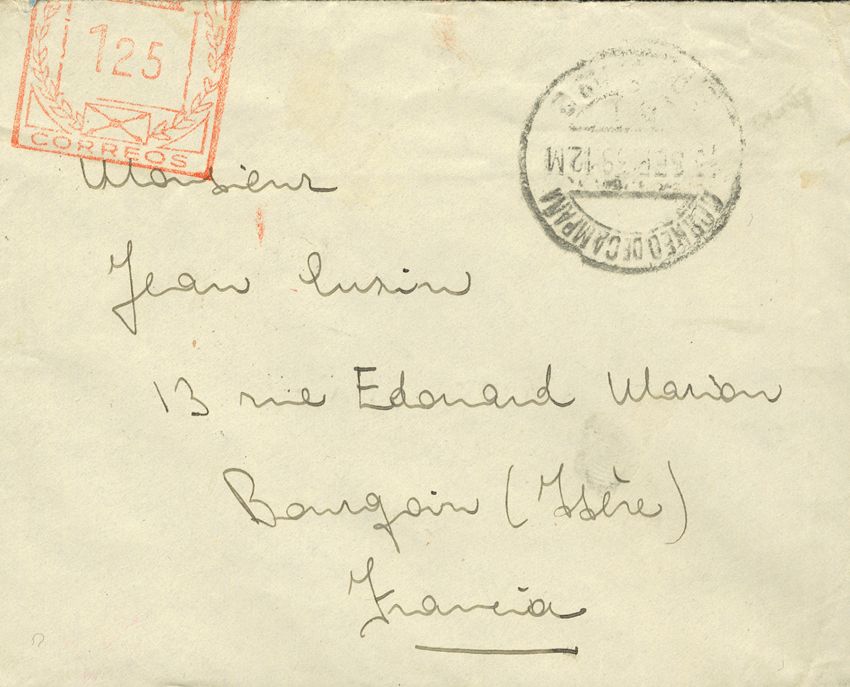 125
CORREOS
SEP 12 M
CORREO DE CAMPAÑA
Monsieur
Jean Cuzin
13 rue Edouard Marion
Bourgoin (Isère)
Francia